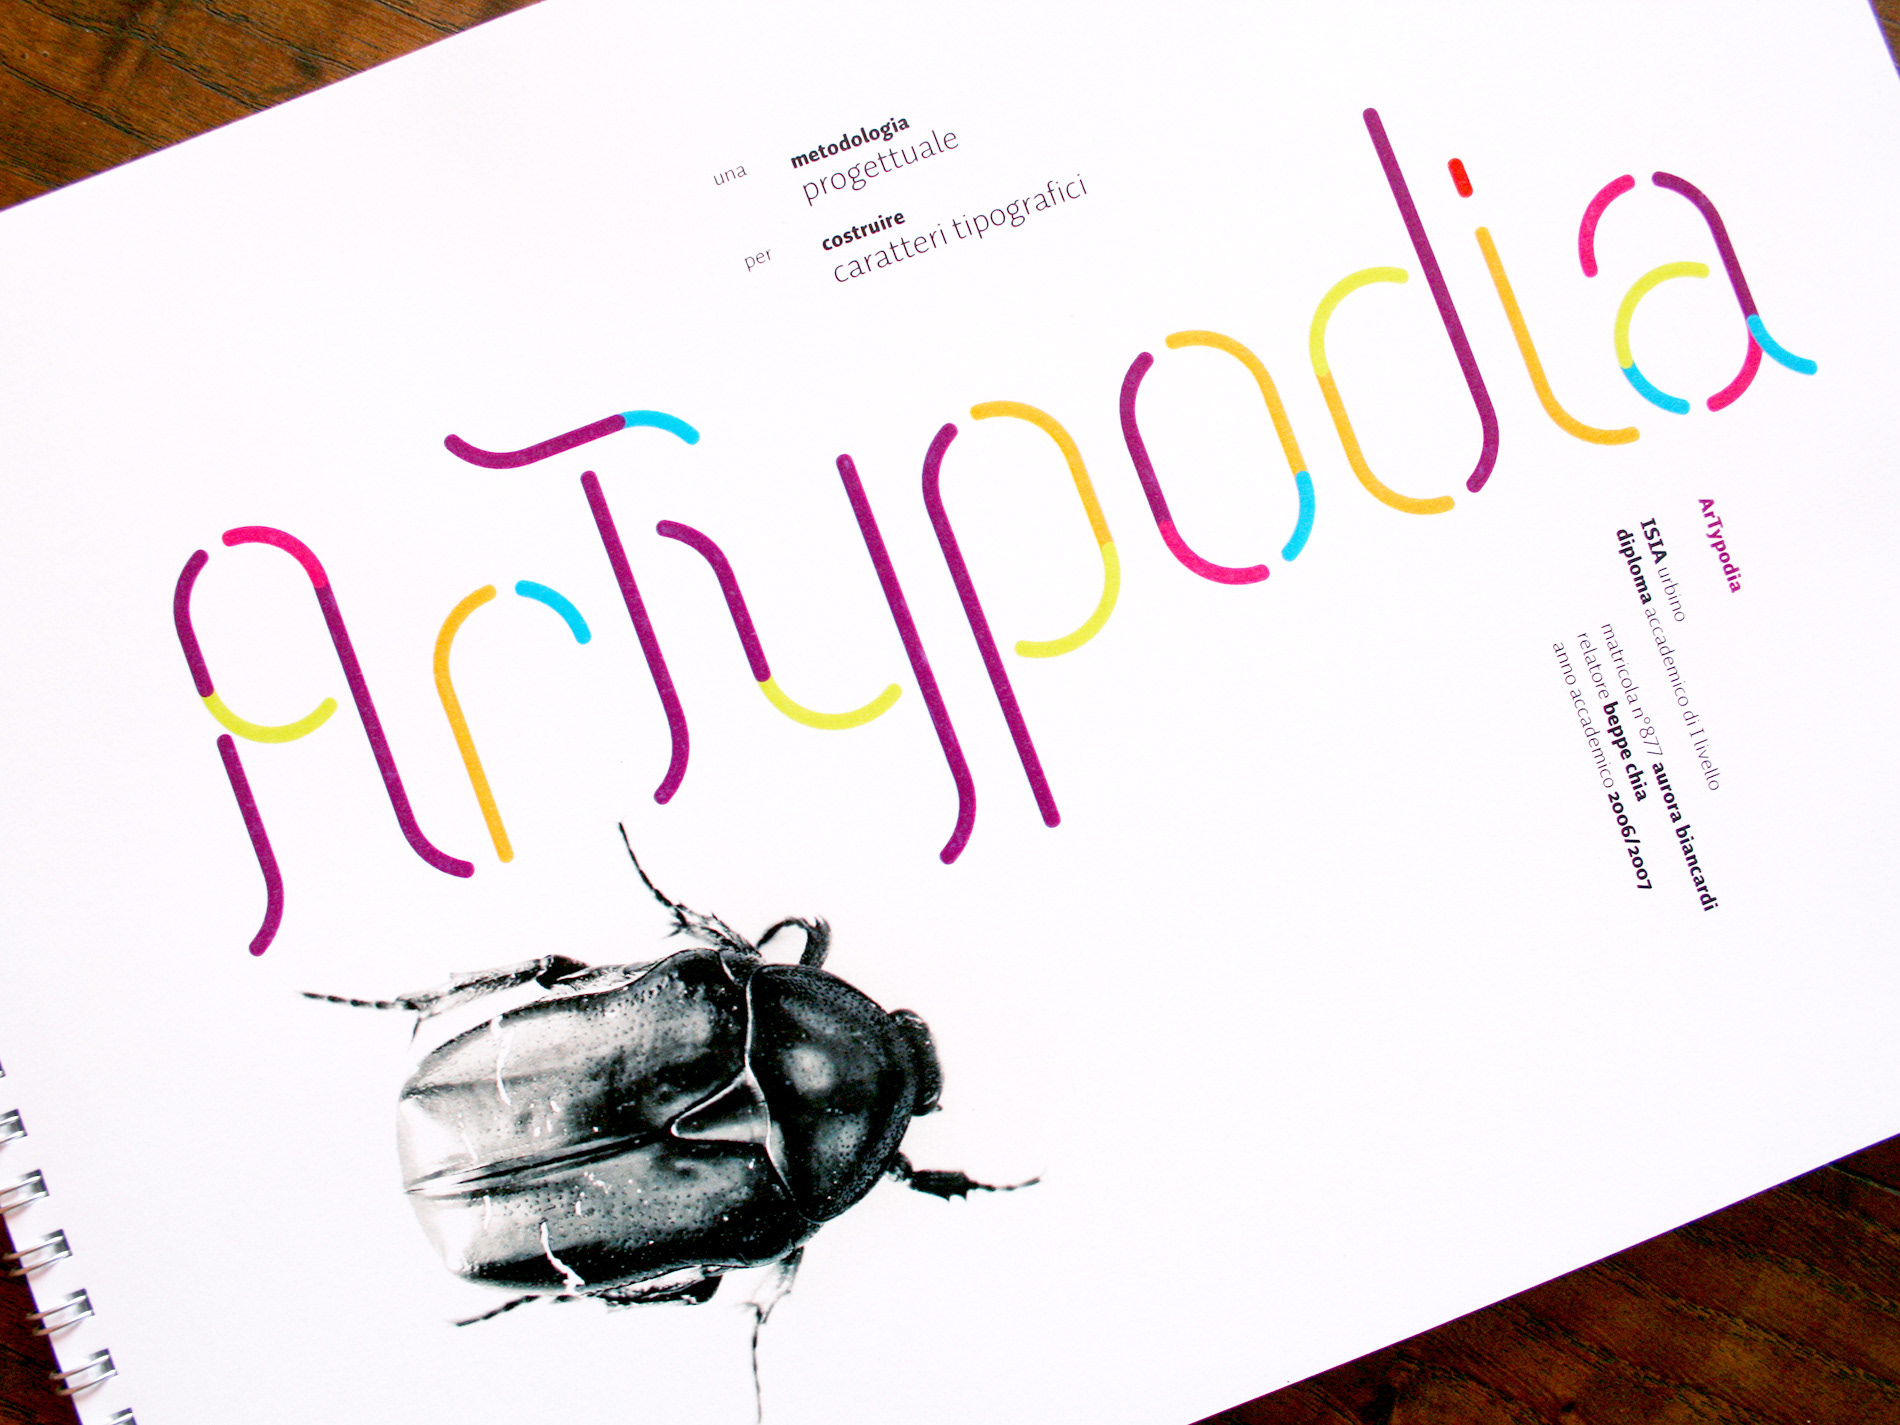 una metodologia
progettuale
per costruire
caratteri tipografici
ArTypodia
ArTypodia
ISIA urbino
diploma accademico di I livello
matricola n°877 aurora biancardi
relatore beppe chia
anno accademico 2006/2007